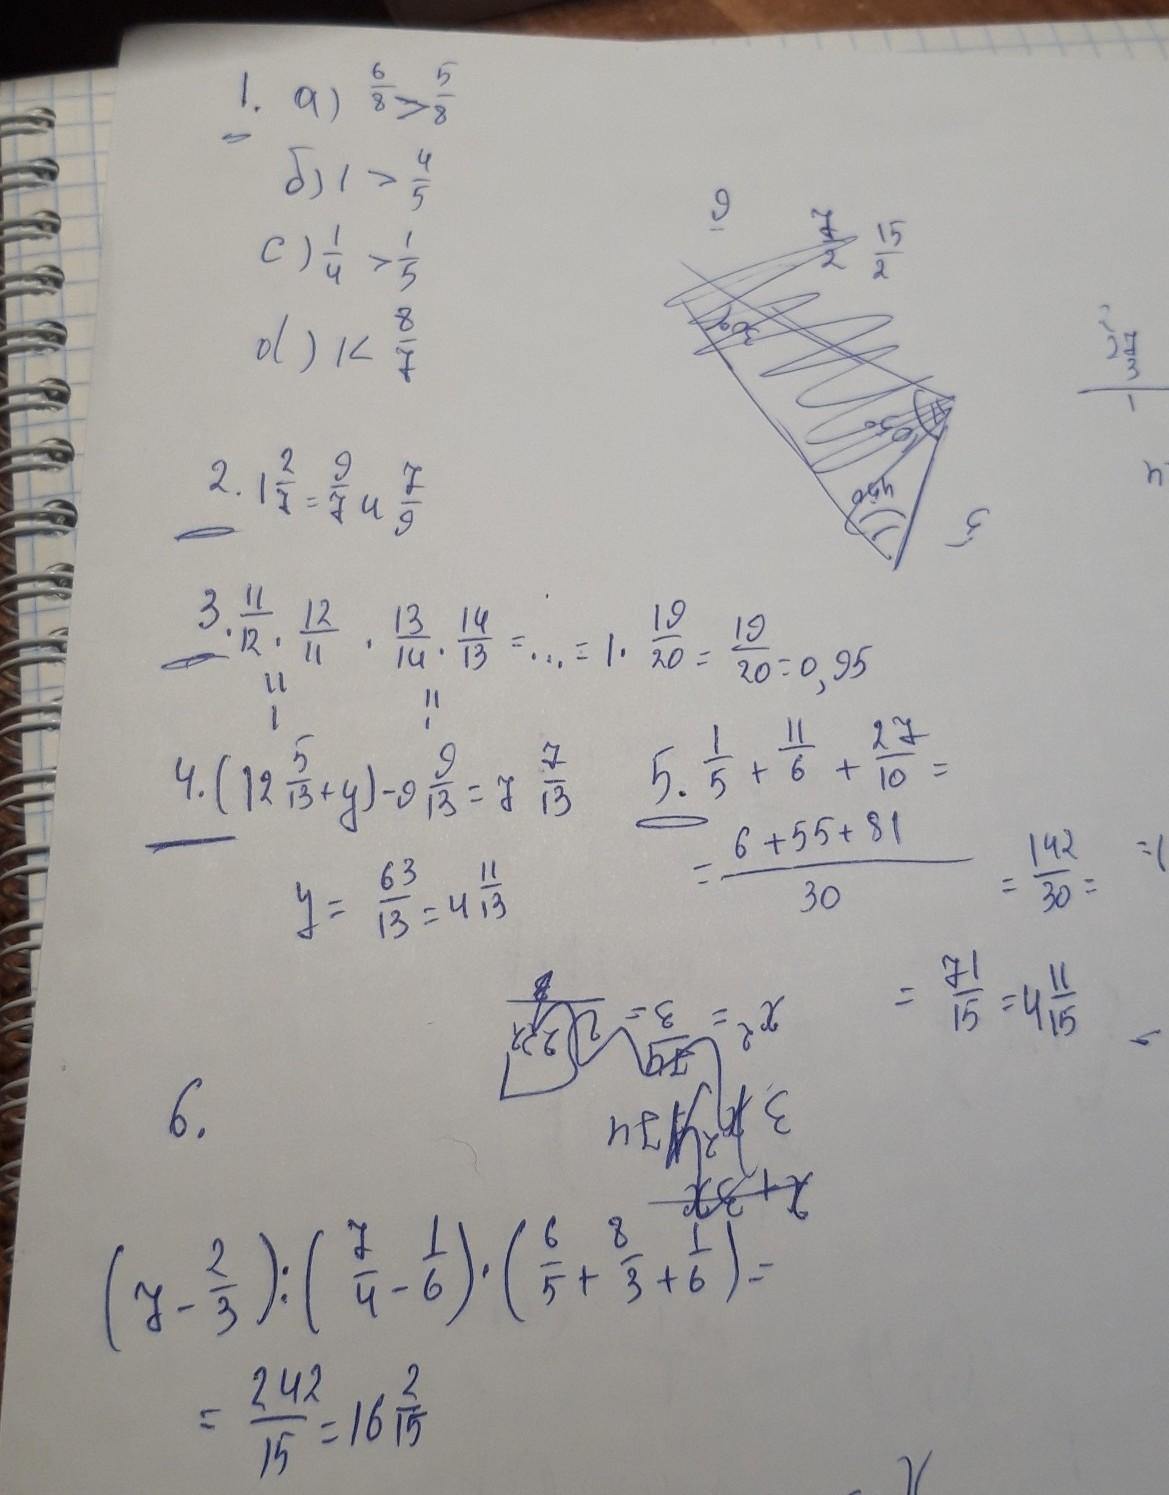 1. а) 6/8 > 5/8
б) 1 > 4/5
c) 1/4 > 1/5
d) 1 < 8/7
6
7/2 15/2
30°
105°
45°
2. 1 2/7 = 9/7 и 7/9
3. 11/12 · 12/11 · 13/14 · 14/13 = ... = 1 · 19/20 = 19/20 = 0,95
11 11
1 1
4. (12 5/13 + y) - 9 9/13 = 7 7/13
y = 63/13 = 4 11/13
5. 1/5 + 11/6 + 27/10 =
= (6 + 55 + 81)/30 = 142/30 =
= 71/15 = 4 11/15
6.
(7 - 2/3) : (7/4 - 1/6) · (6/5 + 8/3 + 1/6) =
= 242/15 = 16 2/15